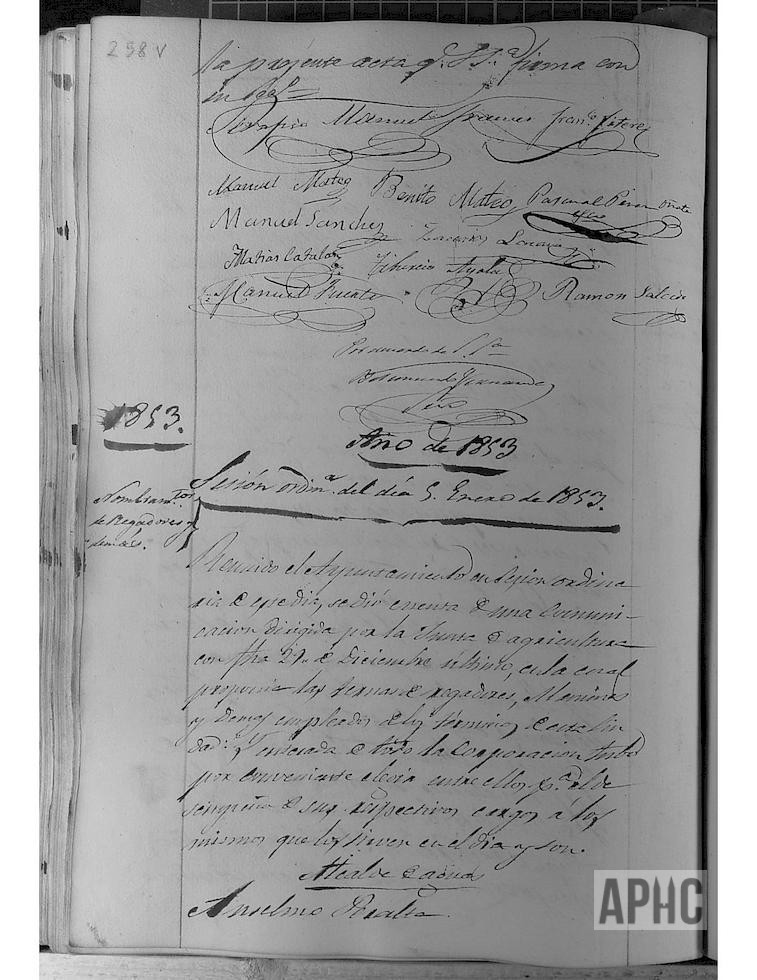 258 v
la presente acta q.e S.S.a firma con
Serapio Manuel Franco Fran.co Litere
Manuel Mateo Benito Mateo Pascual
Manuel Sanchez Zacarias
Matias Catalan Tiburcio Ayala
Manuel Puente Ramon Falcon
Por mandado de S.S.a
1853.
Año de 1853
Sesión ordin.a del día 5. Enero de 1853.
Nombram.tos
de Regadores y
demás.
Reunido el Ayuntamiento en sesion ordina
ria de este dia, se dió cuenta de una comuni-
cacion dirigida por la Junta de agricultura
con fha 29. de Diciembre último, en la cual
proponia las ternas de regadores,
y demas empleados de los términos de esta Ciu
dad: Y enterada de todo la Corporacion
por conveniente elegir entre ellos p.a el de
sempeño de sus respectivos cargos á los
mismos que los sirven en el dia y son.
Alcalde de aguas
Anselmo Peralta.
APHC